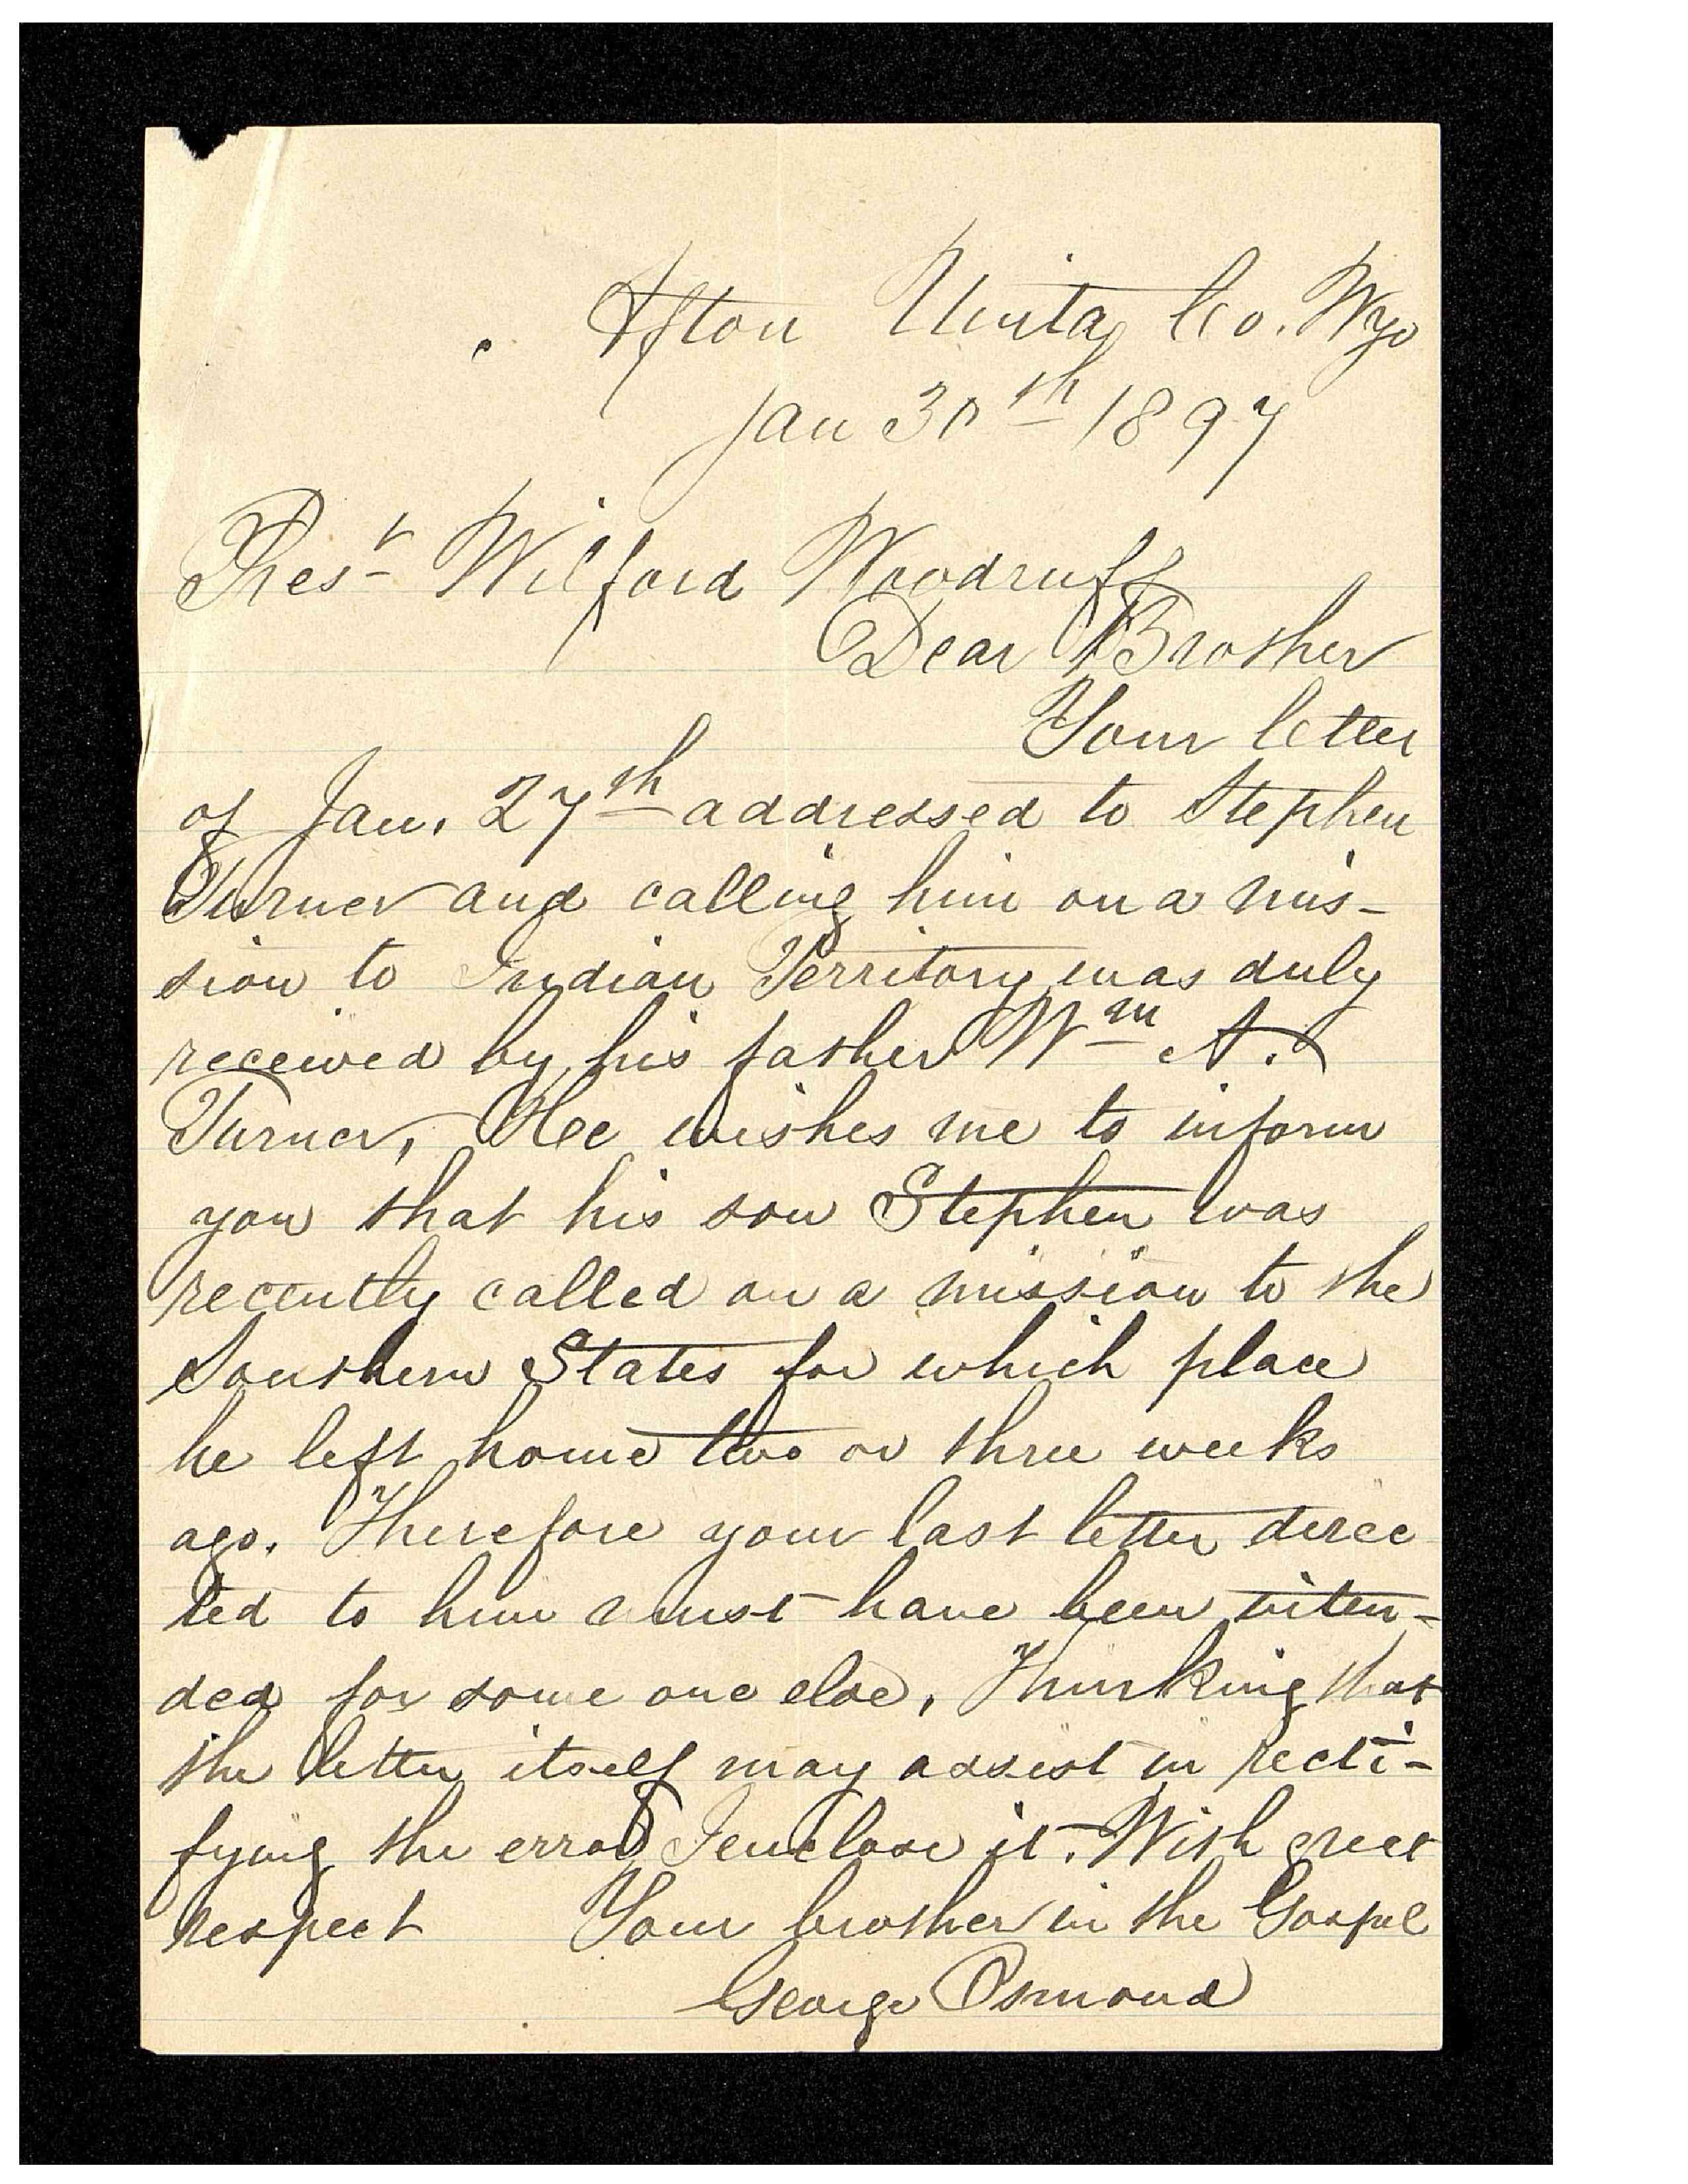 Afton Uinta Co. Wyo
Jan 30th 1897
Prest Wilford Woodruff
Dear Brother
Your letter
of Jan. 27th addressed to Stephen
Turner and calling him on a mis-
sion to Indian Territory was duly
received by his father Wm A.
Turner, He wishes me to inform
you that his son Stephen was
recently called on a mission to the
Southern States for which place
he left home two or three weeks
ago. Therefore your last letter direc
ted to him must have been inten-
ded for some one else, Thinking that
the letter itself may assist in recti-
fying the error I enclose it. With great
respect Your brother in the Gospel
George Osmond